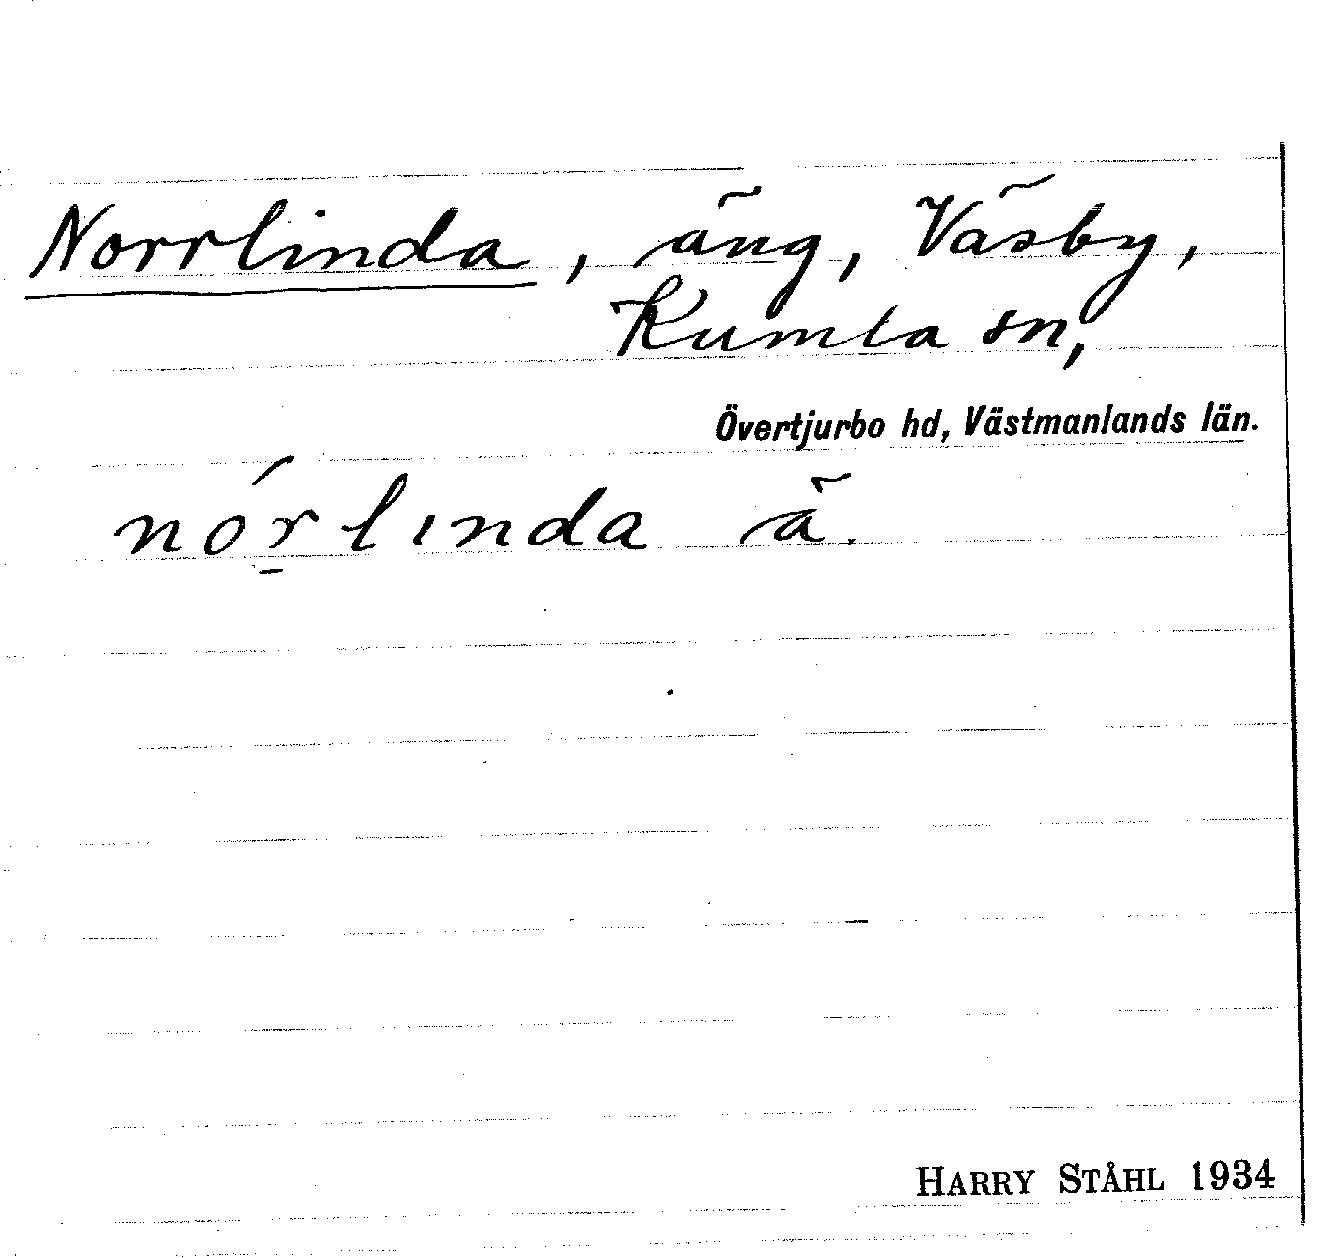 Norrlinda, äng, Väsby,
Kumla sn,
Övertjurbo hd, Västmanlands län.
nórlı̣nda ä.
HARRY STÅHL 1934